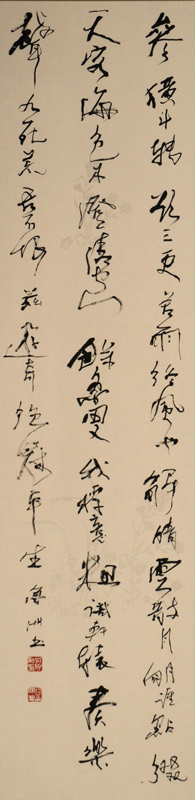 參橫斗轉欲三更苦雨終風也解晴雲散月明誰點綴
天容海色本澄清空餘魯叟乘桴意粗識軒轅奏樂
聲九死荒吾不恨茲遊奇絕冠平生